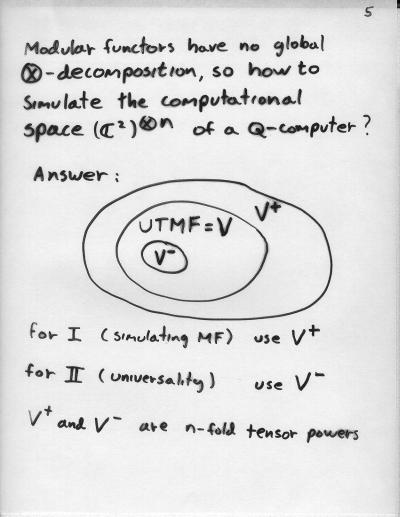 5
Modular functors have no global
⊗-decomposition, so how to
simulate the computational
space (ℂ²)^⊗n of a Q-computer?
Answer:
V⁺
UTMF=V
V⁻
for I (simulating MF) use V⁺
for II (universality) use V⁻
V⁺ and V⁻ are n-fold tensor powers